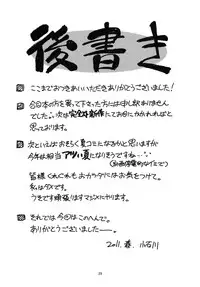 後書き
ここまでおつきあいいただきありがとうございました!
今回本の方を買って下さった方には申し訳ありません
でした。次は完全な新作にてお目にかかれればと
思っております。
次というとおそらく夏コミになるかと思いますが
今年は相当アツい夏になりそうですね…
皆様くれぐれもおカラダにはお気をつけて。
私はダメです。
うきです頑張りますマジメにやります。
それでは今回はこのへんで。
ありがとうございましたーー。
2011. 春. 小石川